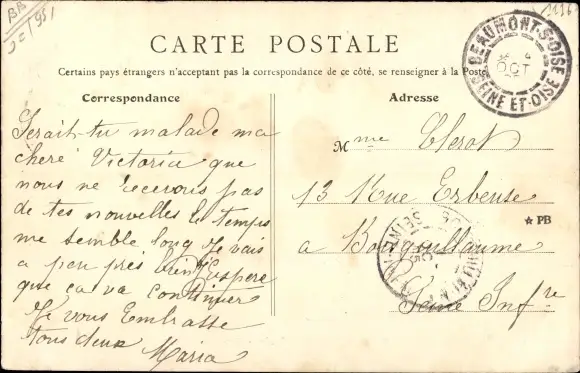 BB
1136
CARTE POSTALE
Certains pays étrangers n'acceptant pas la correspondance de ce côté, se renseigner à la Poste
BEAUMONT-S-OISE
OCT
SEINE ET-OISE
Correspondance
Serait-tu malade ma
cheré Victoria que
nous ne recevons pas
de tes nouvelles le temps
me semble long Je vais
a peu près bien J'espere
que ça va continuer
Je vous Embrasse
tous deux
Maria
Adresse
Mme Clerot
13 Rue Erbeuse
* PB
a Bougouillaume
Seine Infre